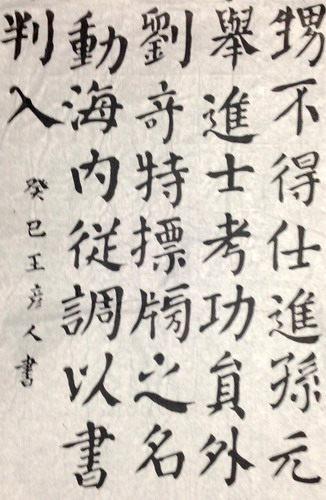 甥不得仕進孫元
舉進士考功員外
劉奇特摽牓之名
動海内從調以書
判入
癸巳王彦人書